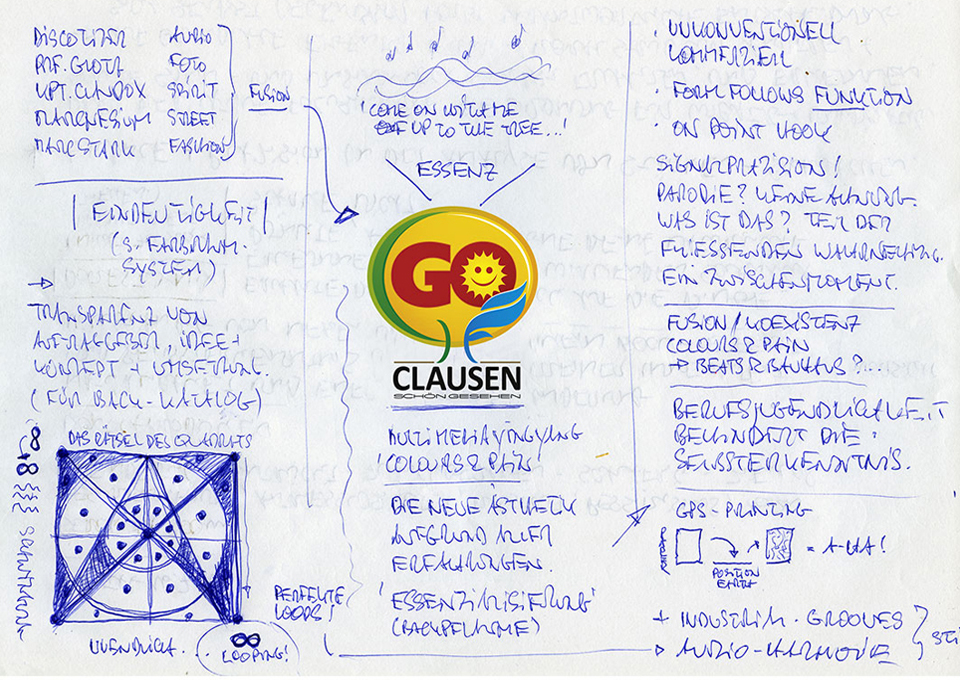 DISCOTIZER AUDIO
FOTO
SPIRIT
MAGNESIUM STREET
MARC STARK FASHION
FUSION
EINDEUTIGKEIT
SYSTEM)
TRANSPARENZ VON
AUFTRAGGEBER, IDEE +
KONZEPT + UMSETZUNG.
(FÜR BACK-KATALOG)
DAS RÄTSEL DES QUADRATS
8
UNENDLICH.
∞
LOOPING!
PERFEKTE
LOOPS!
'COME ON WITH ME
UP TO THE TREE...!'
ESSENZ
GO
CLAUSEN
SCHÖN GESEHEN
MULTIMEDIAYINGYANG
'COLOURS & PAIN'
DIE NEUE ÄSTHETIK
AUFGRUND ALLER
ERFAHRUNGEN.
'ESSENZIALISIERUNG'
· UNKONVENTIONELL
KOMMERZIELL
· FORM FOLLOWS FUNKTION
· ON POINT HOOK
SIGNALPRÄZISION!
PARODIE? KEINE AHNUNG.
WAS IST DAS? TEIL DER
FLIESSENDEN WAHRNEHMUNG.
EIN ZWISCHENMOMENT.
FUSION / KOEXISTENZ
COLOURS & PAIN
BEATS & BAUHAUS?....
BERUFSJUGENDLICHKEIT
BEHINDERT DIE
SELBSTERKENNTNIS.
GPS-PRINTING
POSITION
EARTH
= A-HA!
+ INDUSTRIAL-GROOVES
AUDIO-HARMONIE